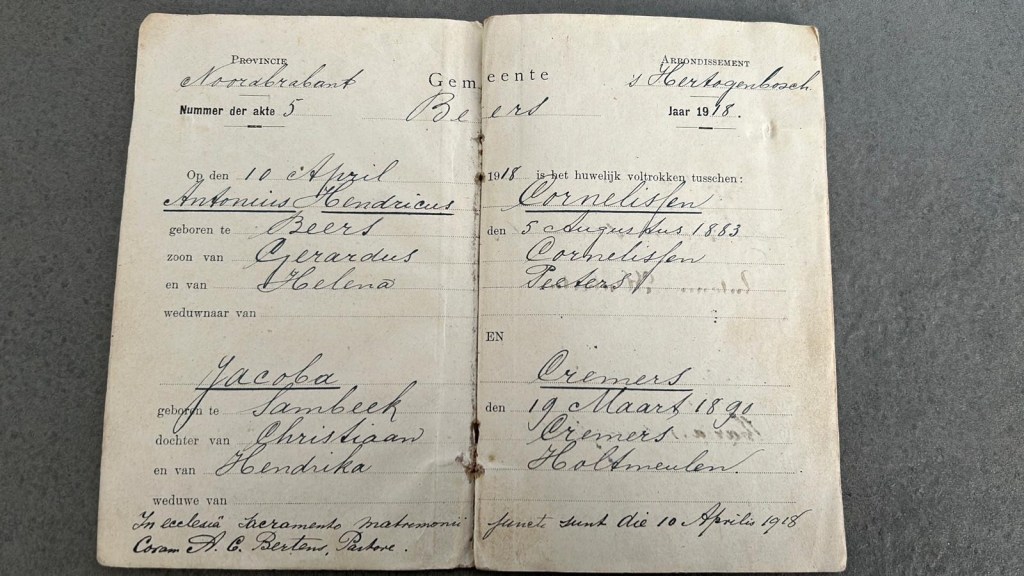 Provincie Arrondissement
Noordbrabant Gemeente 's Hertogenbosch
Nummer der akte 5 Beers Jaar 1918.
Op den 10 April 1918 is het huwelijk voltrokken tusschen:
Antonius Hendricus Cornelissen
geboren te Beers den 5 Augustus 1883
zoon van Gerardus Cornelissen
en van Helena Peeters
weduwnaar van
EN
Jacoba Cremers
geboren te Sambeek den 19 Maart 1890
dochter van Christiaan Cremers
en van Hendrika Holtmeulen
weduwe van
In ecclesiâ sacramento matremonii juncti sunt die 10 Aprilis 1918
Coram A. C. Bertens, Pastore.